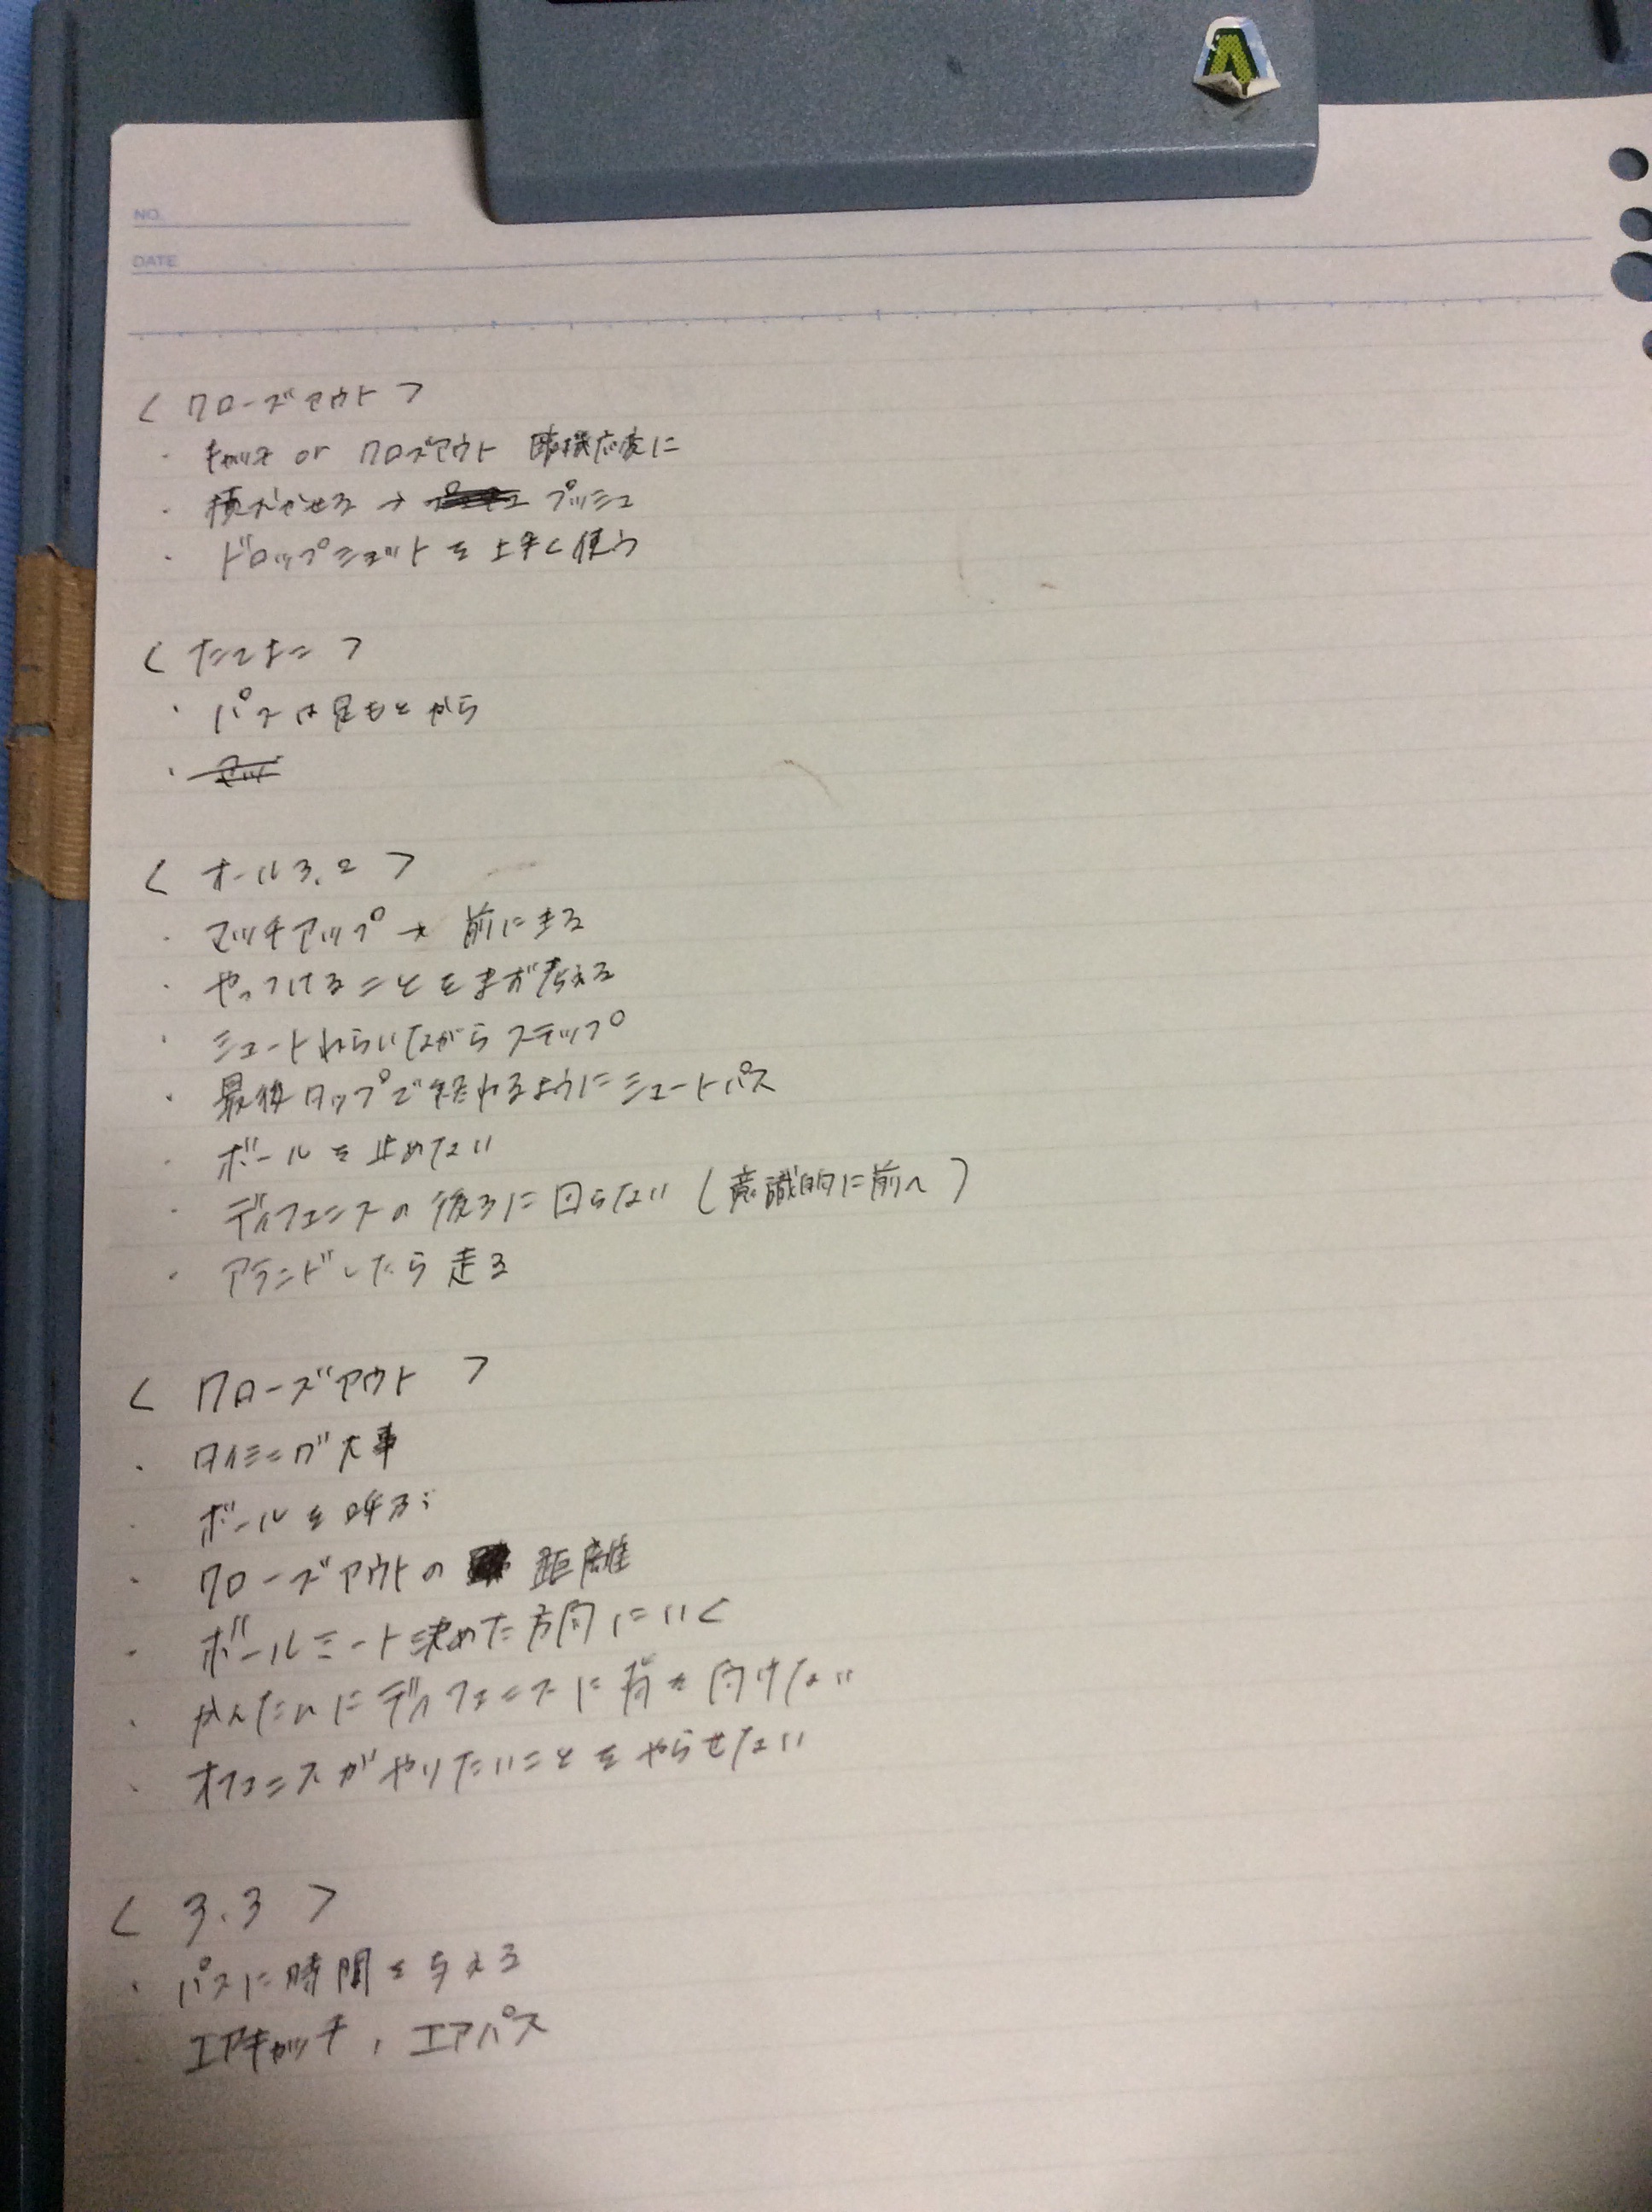 NO.
DATE
< クローズアウト >
・ キャッチ or クロズアウト 臨機応変に
・ 横 かせる → プッシュ
・ ドロップシュットを上手く使う
< たてよこ >
・ パスは足もとから
・
< オールろ.2 >
・ マッチアップ → 前に走る
・ やっつけることをまず考える
・ シュートねらいながらステップ
・ 最後タップで終わるようにシュートパス
・ ボールを止めない
・ ディフェンスの後ろに回らない (意識的に前へ)
・ アランドしたら走る
< クローズアウト >
・ タイミング大事
・ ボールを呼ぶ
・ クローズアウトの 距離
・ ボールミート決めた方向にいく
・ かんたんにディフェンスに背を向けない
・ オフェンスがやりたいことをやらせない
< 3.3 >
・ パスに時間を与える
・ エアキャッチ, エアパス